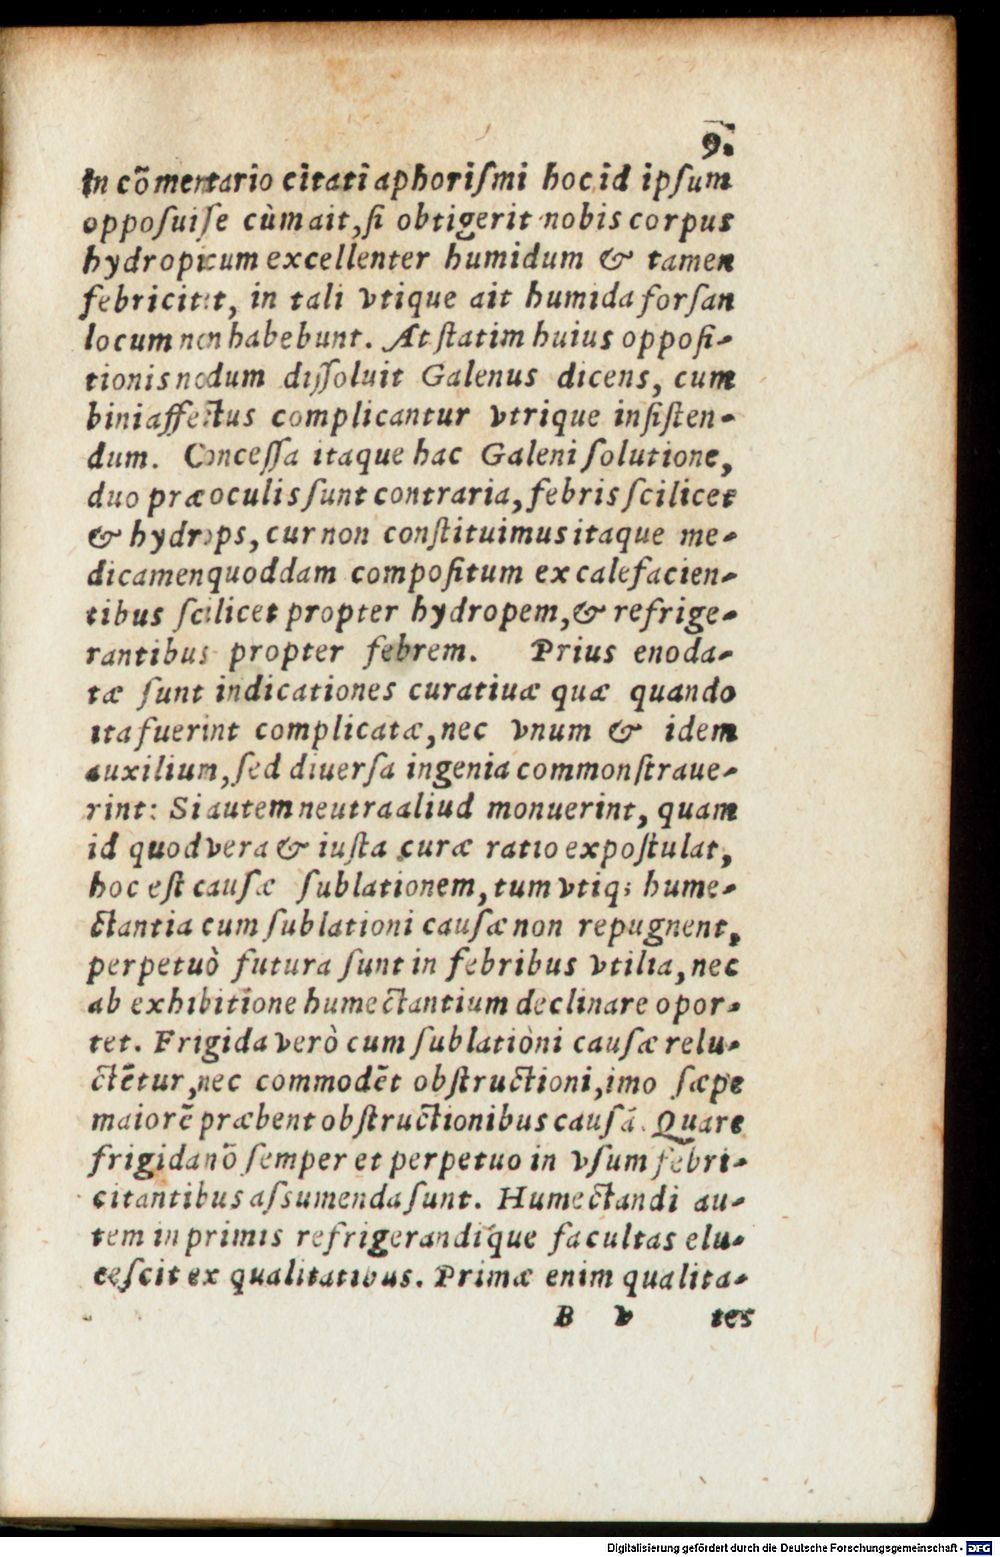 9.
In cõmentario citati aphoriſmi hoc id ipſum
oppoſuiſſe cùm ait, ſi obtigerit nobis corpus
hydropicum excellenter humidum & tamen
febricitet, in tali vtique ait humida forſan
locum non habebunt. At ſtatim huius oppoſi-
tionis nodum diſſoluit Galenus dicens, cum
bini affectus complicantur vtrique inſiſten-
dum. Conceſſa itaque hac Galeni ſolutione,
duo præ oculis ſunt contraria, febris ſcilicet
& hydrops, cur non conſtituimus itaque me-
dicamen quoddam compoſitum ex calefacien-
tibus ſcilicet propter hydropem, & refrige-
rantibus propter febrem. Prius enoda-
tæ ſunt indicationes curatiuæ quæ quando
ita fuerint complicatæ, nec vnum & idem
auxilium, ſed diuerſa ingenia commonſtraue-
rint: Si autem neutra aliud monuerint, quam
id quod vera & iuſta curæ ratio expoſtulat,
hoc eſt cauſæ ſublationem, tum vtiq; hume-
ctantia cum ſublationi cauſæ non repugnent,
perpetuò futura ſunt in febribus vtilia, nec
ab exhibitione humectantium declinare opor-
tet. Frigida verò cum ſublationi cauſæ relu-
ctẽtur, nec commodẽt obſtructioni, imo ſæpe
maiorẽ præbent obſtructionibus cauſã. Quare
frigida nõ ſemper et perpetuo in vſum febri-
citantibus aſsumenda ſunt. Humectandi au-
tem inprimis refrigerandique facultas elu-
ceſcit ex qualitatibus. Primæ enim qualita-
B v tes
Digitalisierung gefördert durch die Deutsche Forschungsgemeinschaft - DFG